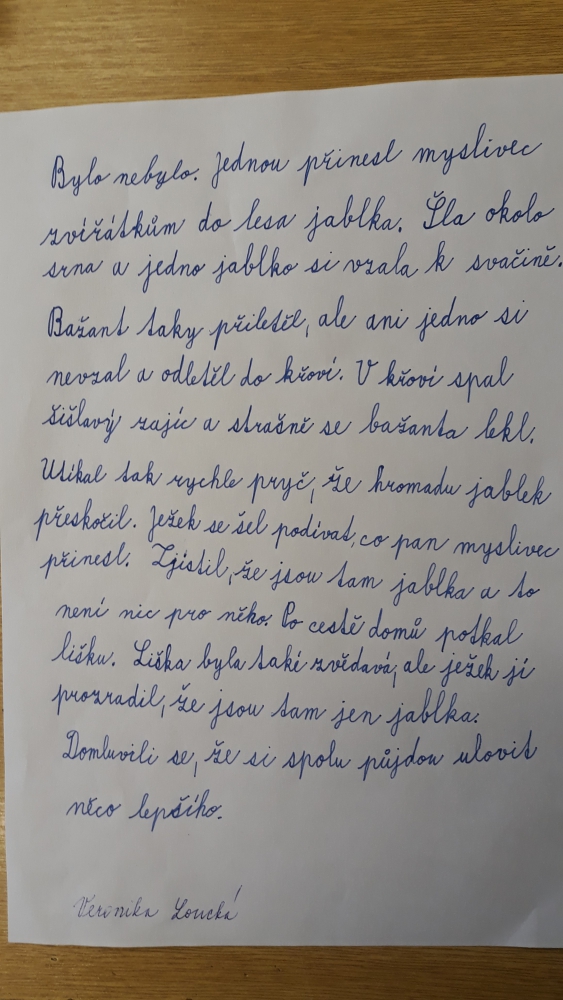 Bylo nebylo. Jednou přinesl myslivec
zvířátkům do lesa jablka. Šla okolo
srna a jedno jablko si vzala k svačině.
Bažant taky přiletěl, ale ani jedno si
nevzal a odletěl do křoví. V křoví spal
šišlavý zajíc a strašně se bažanta lekl.
Utíkal tak rychle pryč, že hromadu jablek
přeskočil. Ježek se šel podívat, co pan myslivec
přinesl. Zjistil, že jsou tam jablka a to
není nic pro něho. Po cestě domů potkal
lišku. Liška byla také zvědavá, ale ježek jí
prozradil, že jsou tam jen jablka.
Domluvili se, že si spolu půjdou ulovit
něco lepšího.
Veronika Loucká